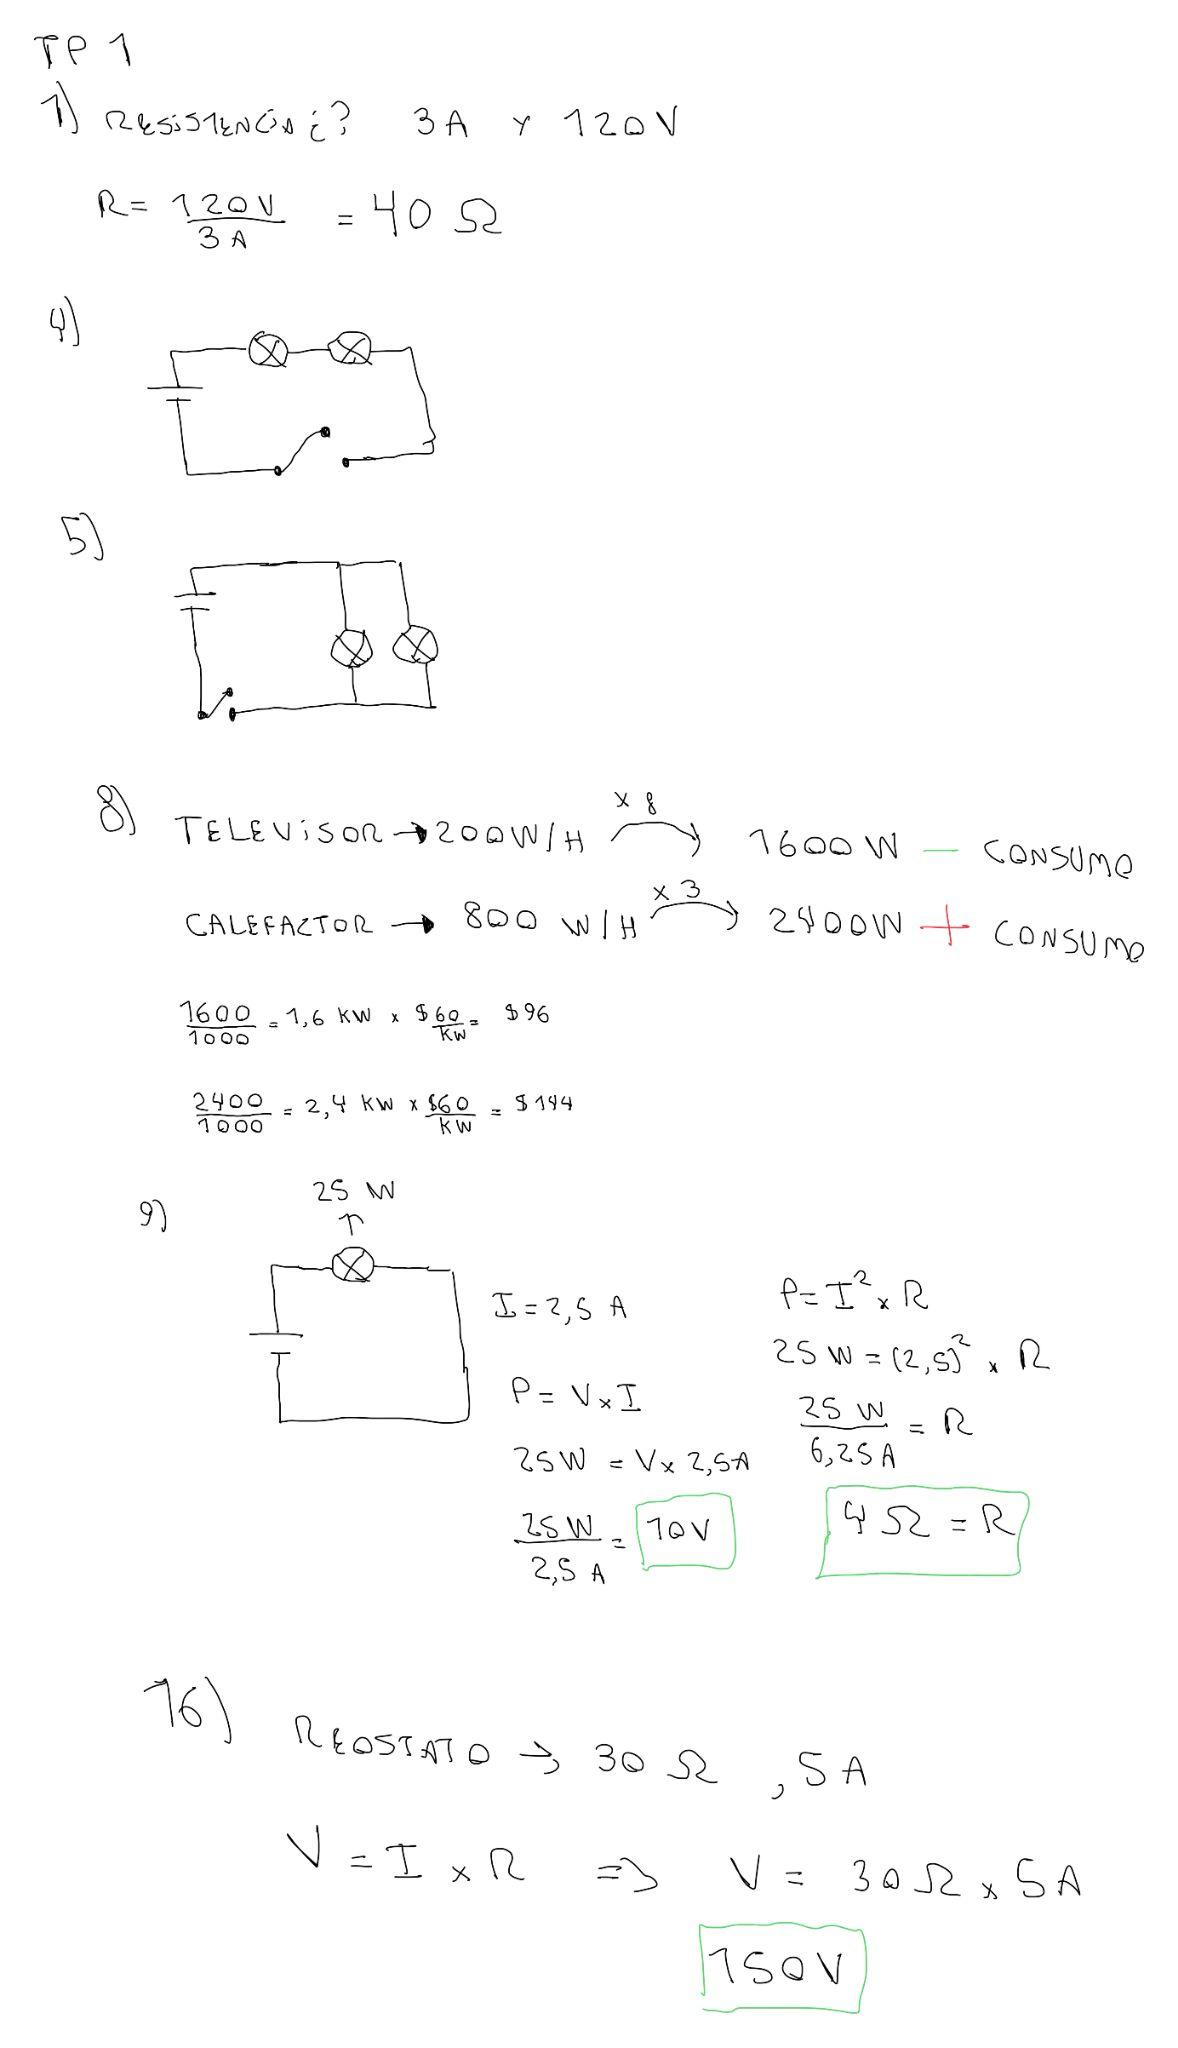 TP 1
1) RESISTENCIA ¿? 3A Y 120V
R = 120V / 3A = 40 Ω
4)
5)
8) TELEVISOR → 200W/H x 8 1600 W - CONSUMO
CALEFACTOR → 800 W/H x 3 2400W + CONSUMO
1600 / 1000 = 1,6 KW x $60 / KW = $96
2400 / 1000 = 2,4 KW x $60 / KW = $144
25 W
9)
I = 2,5 A
P = V x I
25W = V x 2,5A
25W / 2,5 A = 10V
P = I² x R
25 W = (2,5)² x R
25 W / 6,25A = R
4 Ω = R
16) REOSTATO → 30 Ω , 5A
V = I x R => V = 30Ω x 5A
150V